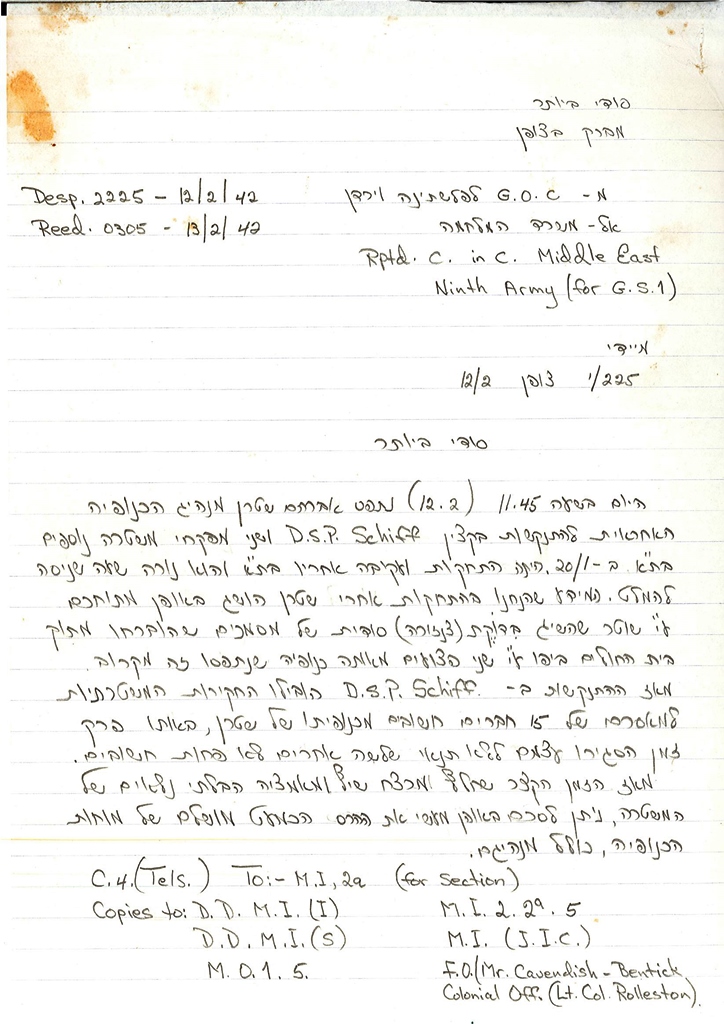 סודי ביותר
מברק בצופן
מ- G.O.C לפלשתינה וירדן
Desp. 2225 - 12/2/42
אל- משרד המלחמה
Recd. 0305 - 13/2/42
Rptd. C. in C. Middle East
Ninth Army (for G.S.1)
מיידי
225/י צופן 12/2
סודי ביותר
היום בשעה 11.45 (12.2) נתפס אברהם שטרן מנהיג הכנופיה
האחראית להתנקשות בקצין D.S.P. Schiff ושני מפקחי משטרה נוספים
בת"א ב-20/1. היתה התחקות ועקיבה אחריו בת"א והוא נורה שעה שניסה
להמלט. המידע שהנחנו בהתחקות אחרי שטרן הושג באופן מתוחכם
ע"י שוטר שהשיג בדיקת (צנזורה) סודית של מסמכים שהוברחו מתוך
בית החולים ביפו ע"י שני פצועים מאותה כנופיה שנתפסו זה מקרוב.
מאז ההתנקשות ב- D.S.P. Schiff. הובילו החקירות המשטרתיות
למאסרם של 15 חברים חשובים מכנופיתו של שטרן, באותו פרק
זמן הסגירו עצמם ללא תנאי שלשה אחרים לא פחות חשובים.
מאז הזמן הקצר שחלף מרצח שיף ומאמציה הבלתי נלאים של
המשטרה, ניתן לסכם באופן מעשי את ההרס הכמעט מושלם של מוחות
הכנופיה, כולל מנהיגם.
C.4. (Tels.) To:- M.I, 2a (for section)
Copies to: D.D. M.I. (I) M.I. 2. 2a. 5
D.D. M.I. (S) M.I. (J.I.C.)
M.O.1.5. F.O. (Mr. Cavendish - Bentick
Colonial Off. (Lt. Col. Rolleston)